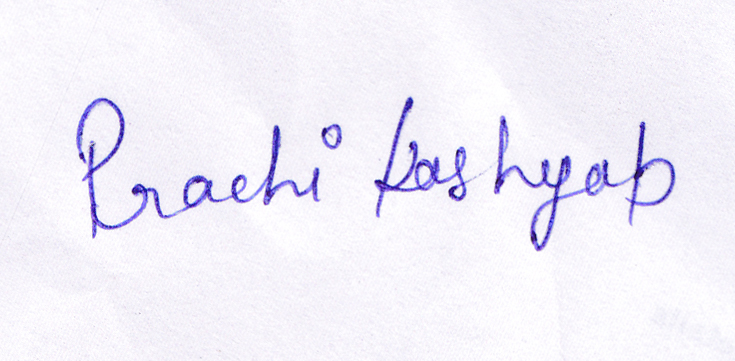 Prachi Kashyap